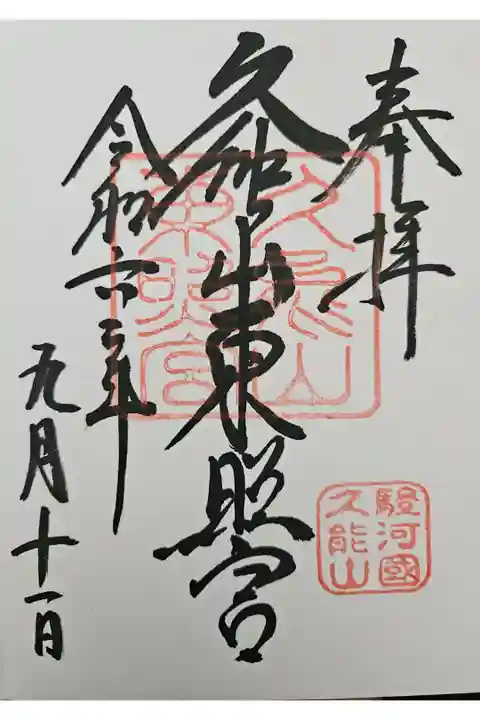 奉拝
久能山東照宮
久能山
東照宮
駿河國
久能山
令和六年
九月十一日